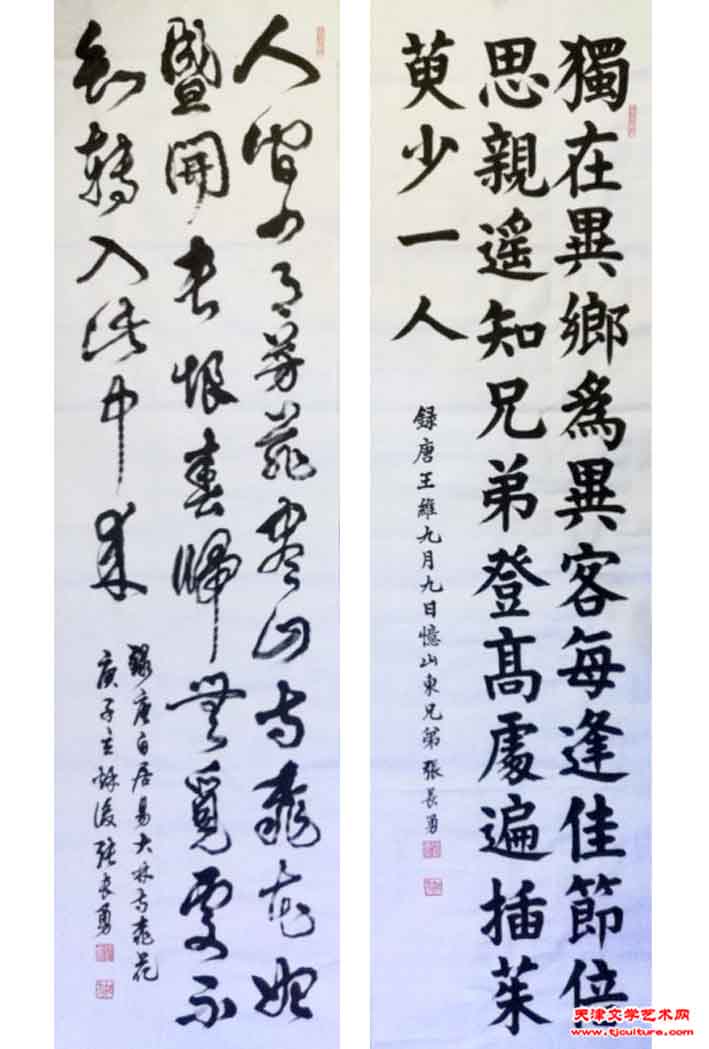 獨在異鄉為異客每逢佳節倍
思親遥知兄弟登髙處遍插茱
萸少一人
録唐王維九月九日憶山東兄弟張長勇
人間四月芳菲盡山寺桃花始
盛開長恨春歸無覓處不
知轉入此中來
録唐白居易大林寺桃花
庚子立秋後張長勇
天津文学艺术网
www.tjculture.com